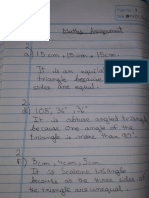 Maths Assignment
2
a) 15cm, 15cm, 15cm
It is an equilateral
triangle because
sides are equal.
2
d) 108°, 36°, 36°
It is obtuse angled triangle
because one angle of the
triangle is more than 90°
2
f) 3cm, 4cm, 5cm
It is scalene triangle
because as the three sides of
the triangle are unequal.